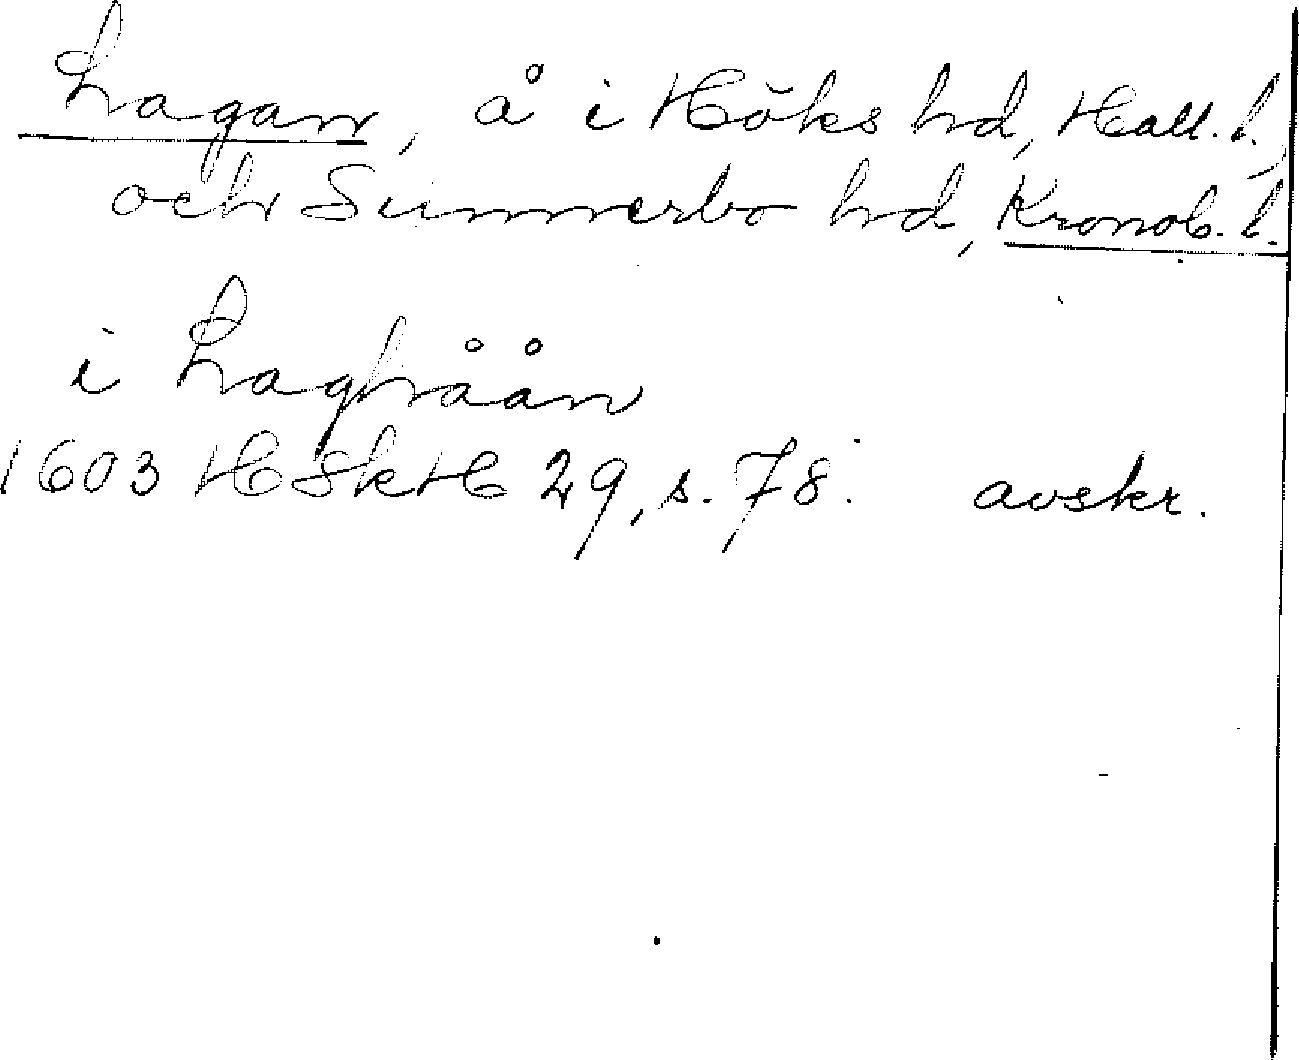 Lagan, å i Höks hd, Hall. l.
och Sunnerbo hd, Kronob. l.
i Laghåån
1603 HSkH 29, s. 78. avskr.